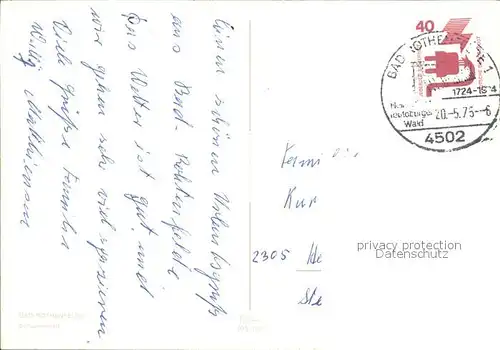 Einen schönen Urlaubsgruß
aus Bad-Rothenfelde
Das Wetter ist gut und
wir gehen sehr viel spazieren.
Viele Grüße Familie
Willy
40
BAD ROTHE
1724-1974
Teutoburger
Wald
20.-5.75--6
4502
Fami
Kur
2305 He
Ste
privacy protection
Datenschutz
BAD ROTHENFELDE